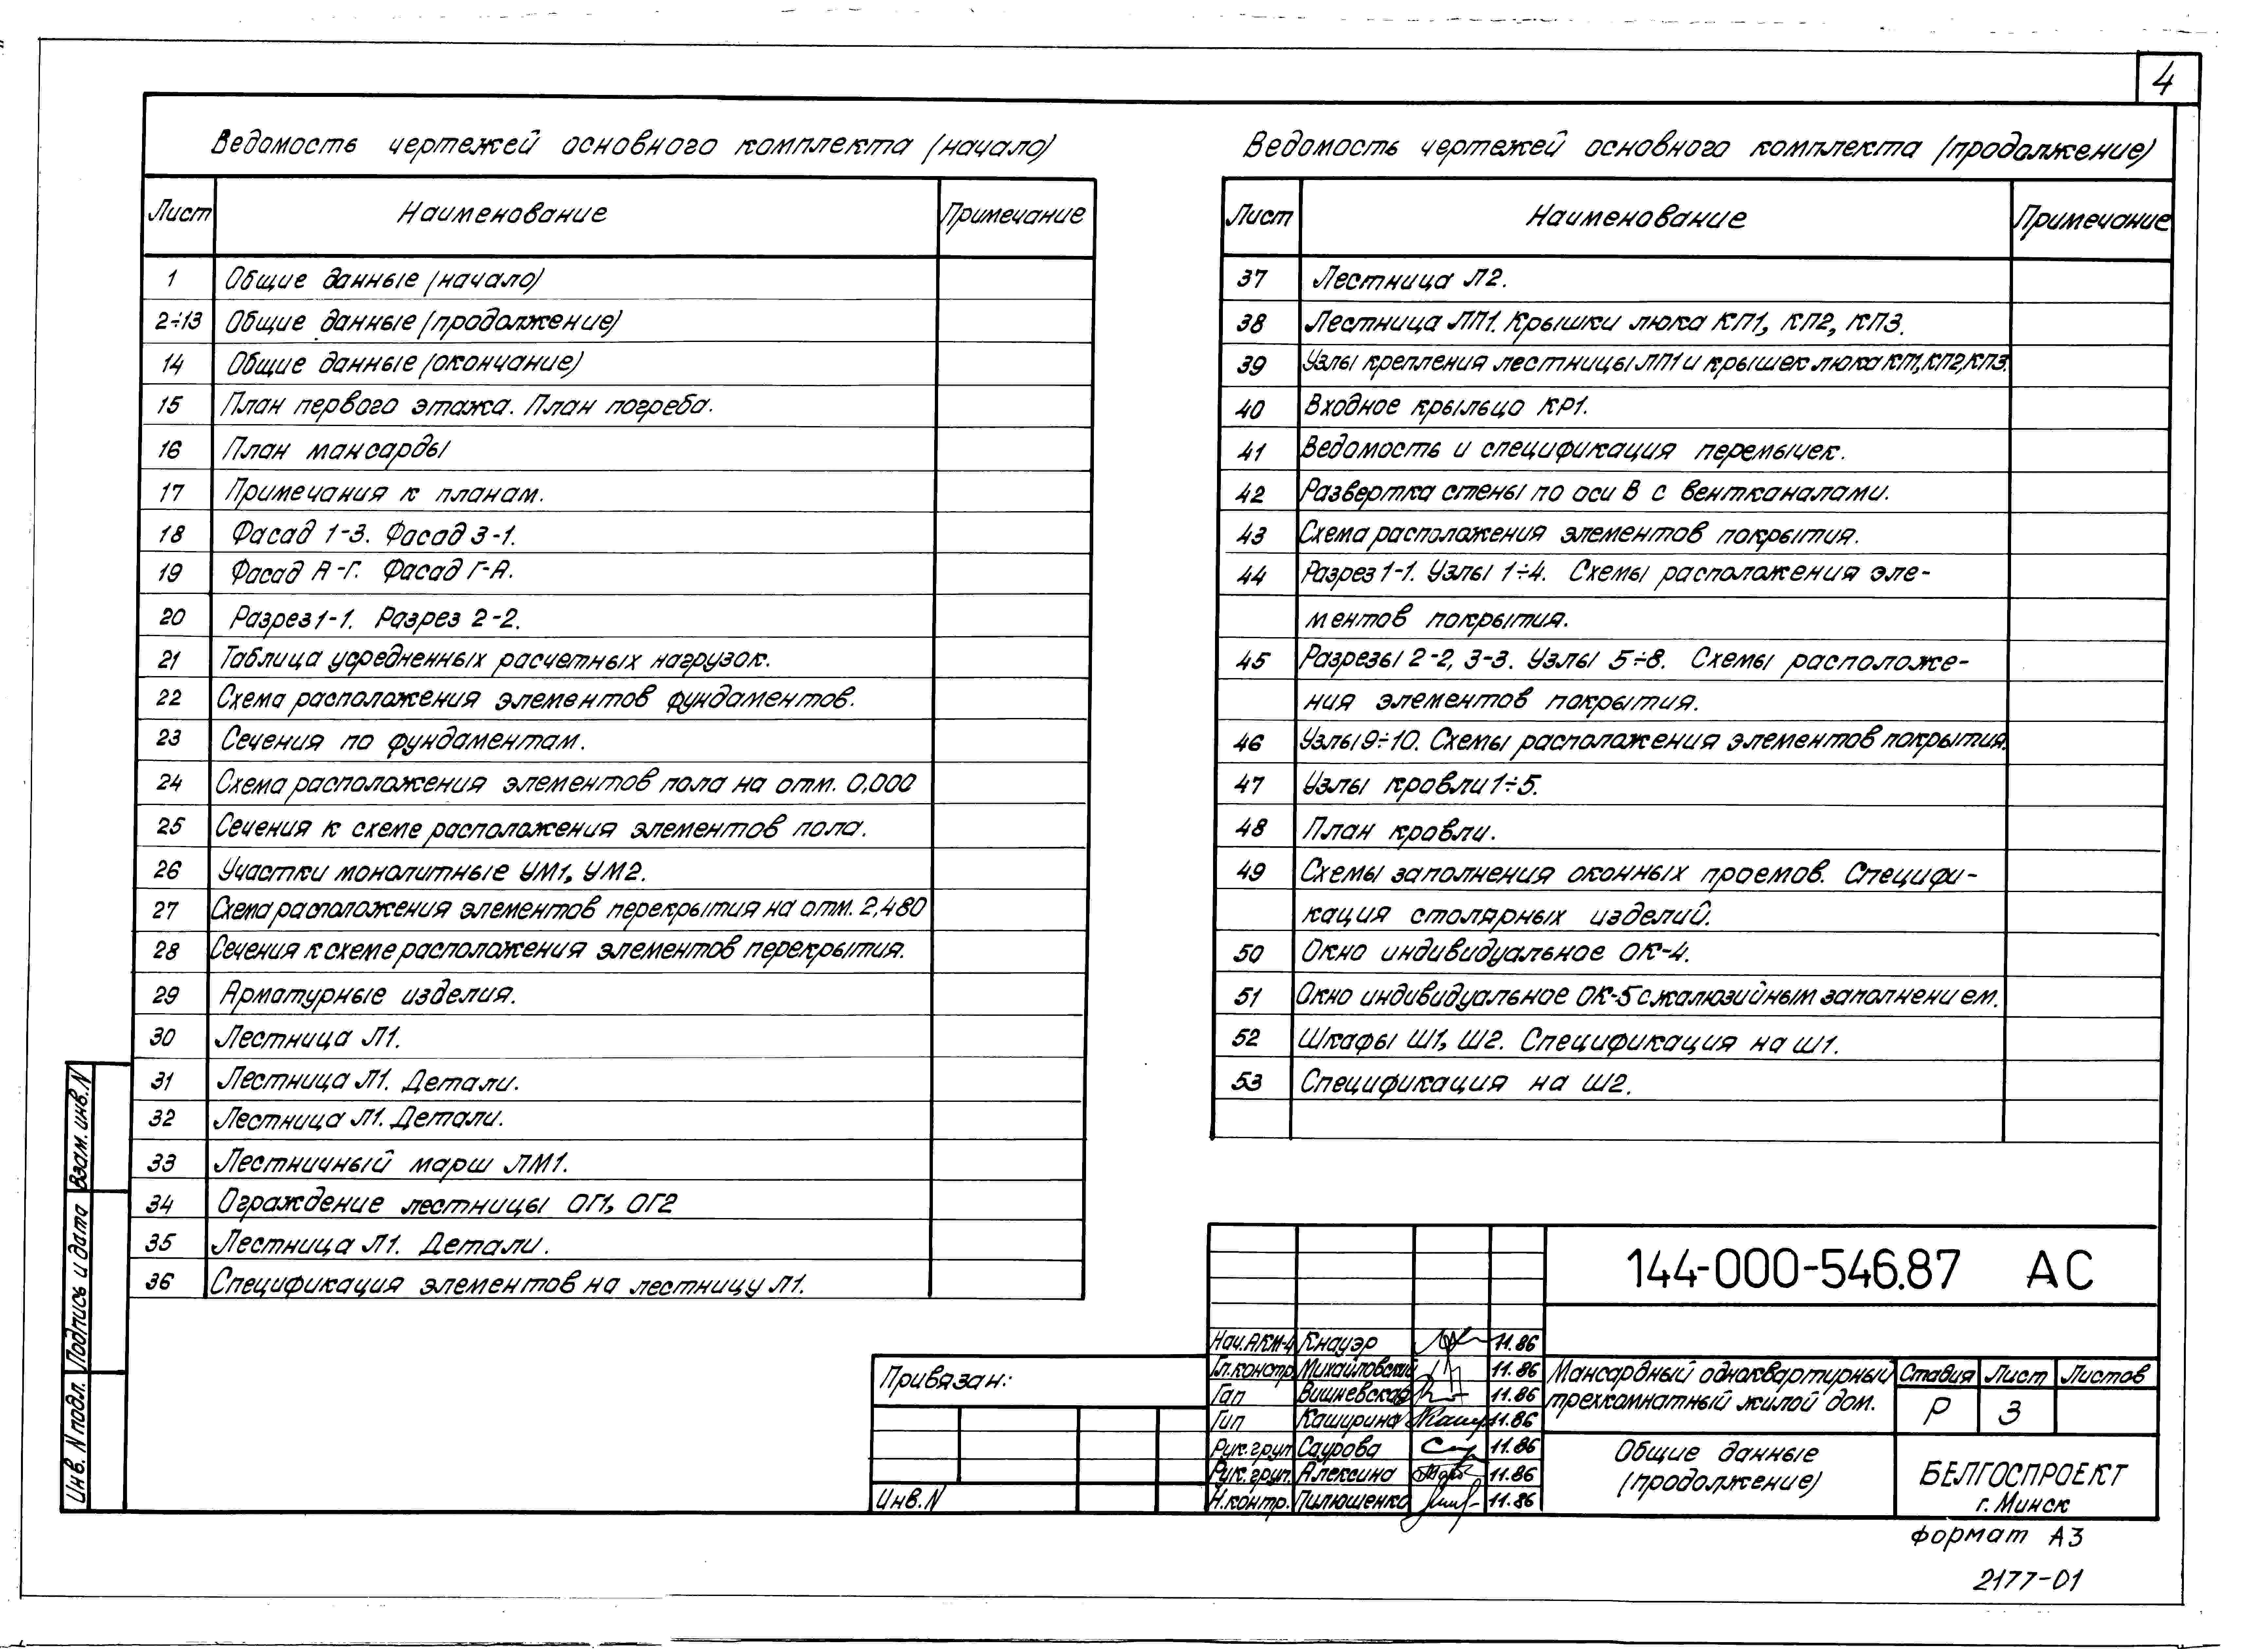 4
Ведомость чертежей основного комплекта (начало)
Лист Наименование Примечание
1 Общие данные (начало)
2÷13 Общие данные (продолжение)
14 Общие данные (окончание)
15 План первого этажа. План погреба.
16 План мансарды
17 Примечания к планам.
18 Фасад 1-3. Фасад 3-1.
19 Фасад А-Г. Фасад Г-А.
20 Разрез 1-1. Разрез 2-2.
21 Таблица усредненных расчетных нагрузок.
22 Схема расположения элементов фундаментов.
23 Сечения по фундаментам.
24 Схема расположения элементов пола на отм. 0,000
25 Сечения к схеме расположения элементов пола.
26 Участки монолитные УМ1, УМ2.
27 Схема расположения элементов перекрытия на отм. 2,480
28 Сечения к схеме расположения элементов перекрытия.
29 Арматурные изделия.
30 Лестница Л1.
31 Лестница Л1. Детали.
32 Лестница Л1. Детали.
33 Лестничный марш ЛМ1.
34 Ограждение лестницы ОГ1, ОГ2
35 Лестница Л1. Детали.
36 Спецификация элементов на лестницу Л1.
Ведомость чертежей основного комплекта (продолжение)
Лист Наименование Примечание
37 Лестница Л2.
38 Лестница ЛП1. Крышки люка КП1, КП2, КП3.
39 Узлы крепления лестницы ЛП1 и крышек люка КП1, КП2, КП3.
40 Входное крыльцо КР1.
41 Ведомость и спецификация перемычек.
42 Развертка стены по оси В с вентканалами.
43 Схема расположения элементов покрытия.
44 Разрез 1-1. Узлы 1÷4. Схемы расположения эле-
ментов покрытия.
45 Разрезы 2-2, 3-3. Узлы 5÷8. Схемы расположе-
ния элементов покрытия.
46 Узлы 9÷10. Схемы расположения элементов покрытия.
47 Узлы кровли 1÷5.
48 План кровли.
49 Схемы заполнения оконных проемов. Специфи-
кация столярных изделий.
50 Окно индивидуальное ОК-4.
51 Окно индивидуальное ОК-5 с жалюзийным заполнением.
52 Шкафы Ш1, Ш2. Спецификация на Ш1.
53 Спецификация на Ш2.
Взам. инв. N
Подпись и дата
Инв. N подл.
Привязан:
Инв. N
144-000-546.87 АС
Нач. АКМ-4 Кнауэр 11.86
Гл. констр. Михайловский 11.86
Гап Вишневская 11.86
Гип Каширина 11.86
Рук. груп. Саурова 11.86
Рук. груп. Алексина 11.86
Н. контр. Пилюшенко 11.86
Мансардный одноквартирный
трехкомнатный жилой дом.
Стадия Лист Листов
Р 3
Общие данные
(продолжение)
БЕЛГОСПРОЕКТ
г. Минск
формат А3
2177-01